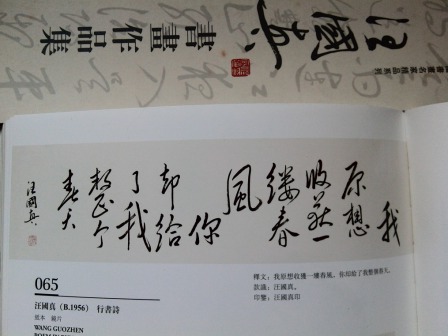 汪國真
書畫作品集
我
原想
收获一
缕春
風
你
却给
了我
整个
春天
汪國真
065
汪國真（B.1956） 行書詩
紙本 鏡片
WANG GUOZHEN
釋文：我原想收獲一縷春風，你却給了我整個春天。
款識：汪國真。
印鑒：汪國真印